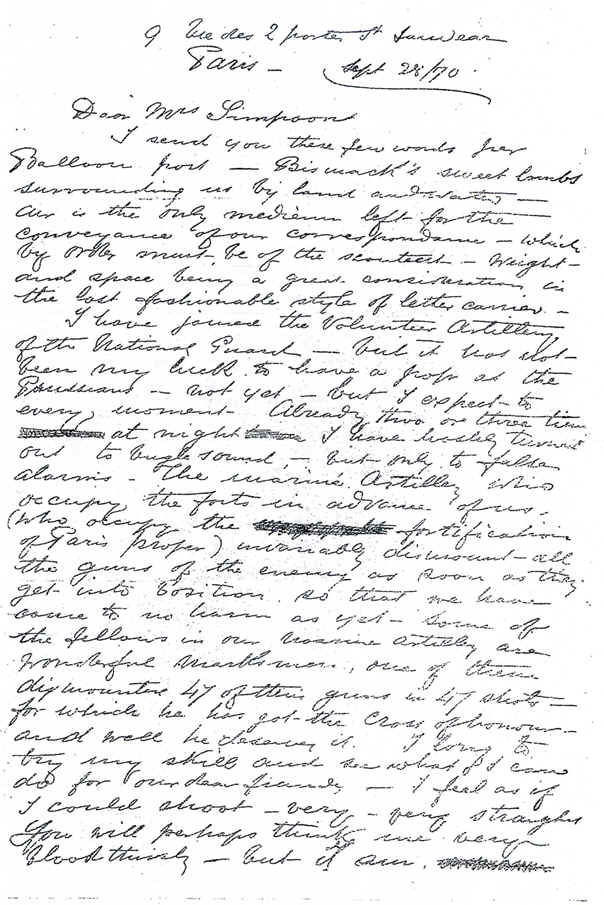 9 Rue des 2 portes St Sauveur
Paris — Sept 28/70.
Dear Mrs Simpson
I send you these few words per
Balloon post — Bismack's sweet lambs
surrounding us by land and water —
air is the only medium left for the
conveyance of our correspondance — which
by order must be of the scantest — weight —
and space being a great consideration in
the last fashionable style of letter carrier. —
I have joined the Volunteer Artillery
of the National Guard — but it has not
been my luck to have a pop at the
Prussians — not yet — but I expect to
every moment. Already two or three times
at night I have hastily turned
out to bugle sound, — but only to false
alarms — The marine Artillery who
occupy the forts in advance of us
(who occupy the fortification
of Paris proper) invariably dismount all
the guns of the enemy as soon as they
get into position so that we have
come to no harm as yet — Some of
the fellows in our marine Artillery are
wonderful marksmen, one of them
dismounted 47 of their guns in 47 shots —
for which he has got the Cross of honour —
and well he deserves it. I long to
try my skill and see what I can
do for our dear friends — I feel as if
I could shoot — very — very straight
You will perhaps think me very
bloodthirsty — but it